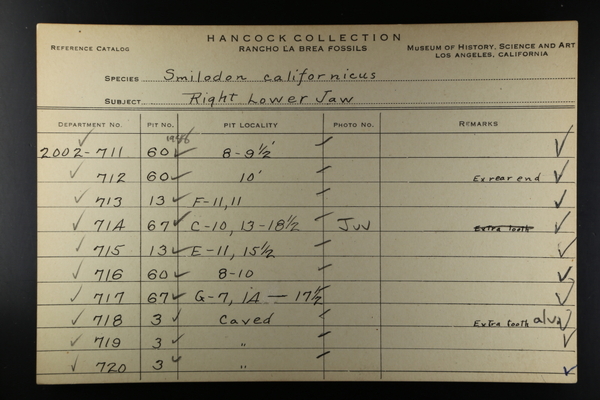 HANCOCK COLLECTION
REFERENCE CATALOG RANCHO LA BREA FOSSILS MUSEUM OF HISTORY, SCIENCE AND ART
LOS ANGELES, CALIFORNIA
SPECIES Smilodon californicus
SUBJECT Right Lower Jaw
DEPARTMENT NO. PIT NO. PIT LOCALITY PHOTO NO. REMARKS
2002-711 60 8-9½'
712 60 10' Ex rear end
713 13 F-11, 11
714 67 C-10, 13-18½ Juv Extra tooth
715 13 E-11, 15½
716 60 8-10
717 67 G-7, 14 — 17½
718 3 Caved Extra tooth
719 3 "
720 3 "